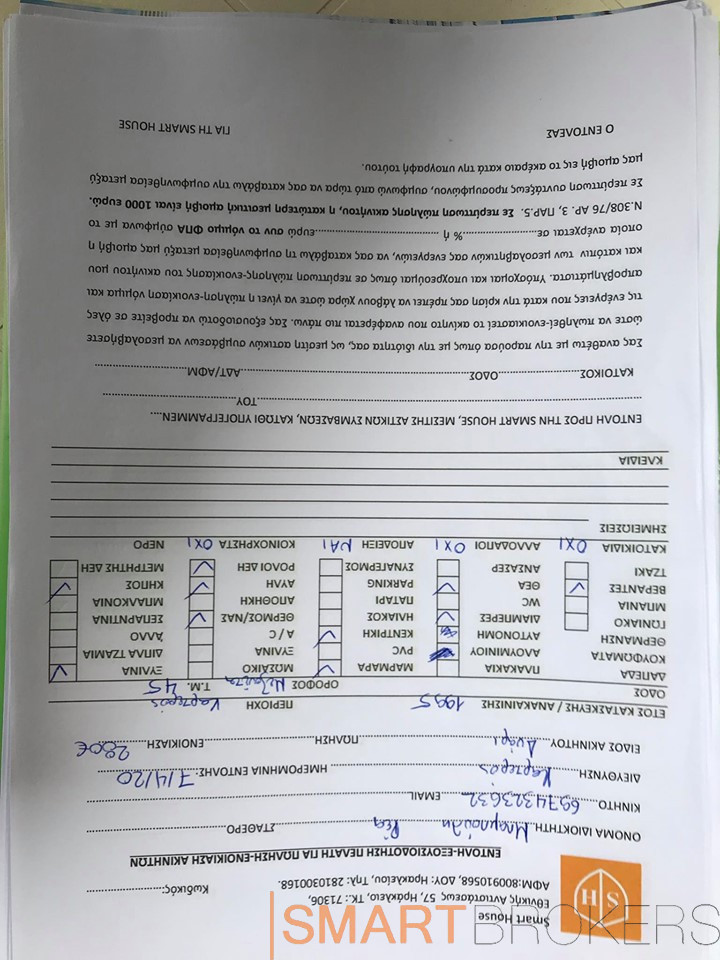 Smart House
Εθνικής Αντιστάσεως, 57, Ηράκλειο, ΤΚ: 71306,
ΑΦΜ:800910568, ΔΟΥ: Ηρακλείου, Τηλ: 2810300168.
Κωδικός:
ΕΝΤΟΛΗ-ΕΞΟΥΣΙΟΔΟΤΗΣΗ ΠΕΛΑΤΗ ΓΙΑ ΠΩΛΗΣΗ-ΕΝΟΙΚΙΑΣΗ ΑΚΙΝΗΤΩΝ
ΟΝΟΜΑ ΙΔΙΟΚΤΗΤΗ Μπαμπουλη Ρέα ΣΤΑΘΕΡΟ
ΚΙΝΗΤΟ 6974323632 EMAIL
ΔΙΕΥΘΥΝΣΗ Καρτερός ΗΜΕΡΟΜΗΝΙΑ ΕΝΤΟΛΗΣ: 7/4/20
ΕΙΔΟΣ ΑΚΙΝΗΤΟΥ Δυάρι ΠΩΛΗΣΗ ΕΝΟΙΚΙΑΣΗ 280€
ΕΤΟΣ ΚΑΤΑΣΚΕΥΗΣ / ΑΝΑΚΑΙΝΙΣΗΣ 1995 ΠΕΡΙΟΧΗ Καρτερός
ΟΔΟΣ ΟΡΟΦΟΣ Τ.Μ. 45
ΔΑΠΕΔΑ ΠΛΑΚΑΚΙΑ ΜΑΡΜΑΡΑ ΜΩΣΑΙΚΟ ΞΥΛΙΝΑ
ΚΟΥΦΩΜΑΤΑ ΑΛΟΥΜΙΝΙΟΥ PVC ΞΥΛΙΝΑ ΔΙΠΛΑ ΤΖΑΜΙΑ
ΘΕΡΜΑΝΣΗ ΑΥΤΟΝΟΜΗ ΚΕΝΤΡΙΚΗ A / C ΑΛΛΟ
ΓΩΝΙΑΚΟ ΔΙΑΜΠΕΡΕΣ ΗΛΙΑΚΟΣ ΘΕΡΜΟΣ/ΝΑΣ ΞΑΠΛΕΝΤΙΝΑ
ΜΠΑΝΙΑ WC ΠΑΤΑΡΙ ΑΠΟΘΗΚΗ ΜΠΑΛΚΟΝΙΑ
ΒΕΡΑΝΤΕΣ ΘΕΑ PARKING ΑΥΛΗ ΚΗΠΟΣ
ΤΖΑΚΙ ΑΝΣΑΣΕΡ ΣΥΝΑΓΕΡΜΟΣ ΡΟΛΟΙ ΔΕΗ ΜΕΤΡΗΤΗΣ ΔΕΗ
ΚΑΤΟΙΚΙΔΙΑ ΟΧΙ ΑΛΛΟΔΑΠΟΙ ΟΧΙ ΑΠΟΔΕΙΞΗ ΝΑΙ ΚΟΙΝΟΧΡΗΣΤΑ ΟΧΙ ΝΕΡΟ
ΣΗΜΕΙΩΣΕΙΣ
ΚΛΕΙΔΙΑ
ΕΝΤΟΛΗ ΠΡΟΣ ΤΗΝ SMART HOUSE, ΜΕΣΙΤΗΣ ΑΣΤΙΚΩΝ ΣΥΜΒΑΣΕΩΝ, ΚΑΤΩΘΙ ΥΠΟΓΕΓΡΑΜΜΕΝ....
ΤΟΥ
ΚΑΤΟΙΚΟΣ ΟΔΟΣ ΑΔΤ/ΑΦΜ
Σας αναθέτω με την παρούσα όπως με την ιδιότητα σας, ως μεσίτη αστικών συμβάσεων να μεσολαβήσετε
ώστε να πωληθεί-ενοικιαστεί το ακίνητο που αναφέρεται πιο πάνω. Σας εξουσιοδοτώ να προβείτε σε όλες
τις ενέργειες που κατά την κρίση σας πρέπει να λάβουν χώρα ώστε να γίνει η πώληση-ενοικίαση νόμιμα και
απροβλημάτιστα. Υπόσχομαι και υποχρεούμαι όπως σε περίπτωση πώλησης-ενοικίασης του ακινήτου μου
και κατόπιν των μεσολαβητικών σας ενεργειών, να σας καταβάλω τη συμφωνηθείσα μεταξύ μας αμοιβή η
οποία ανέρχεται σε % ή ευρώ συν το νόμιμο ΦΠΑ σύμφωνα με το
Ν.308/76 ΑΡ. 3, ΠΑΡ.5. Σε περίπτωση πώλησης ακινήτου, η κατώτερη μεσιτική αμοιβή είναι 1000 ευρώ.
Σε περίπτωση συντάξεως προσυμφώνου, συμφωνώ από τώρα να σας καταβάλω την συμφωνηθείσα μεταξύ
μας αμοιβή εις το ακέραιο κατά την υπογραφή τούτου.
Ο ΕΝΤΟΛΕΑΣ ΓΙΑ ΤΗ SMART HOUSE
SMARTBROKERS